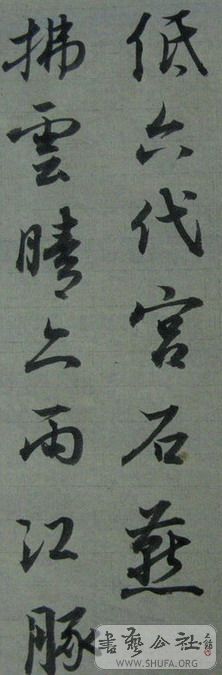 低六代宮石燕
拂雲晴亦雨江豚
書藝公社
WWW.SHUFA.ORG